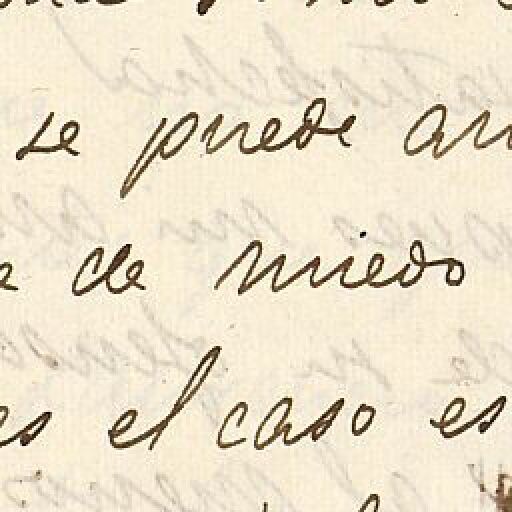 se puede
de miedo
es el caso es